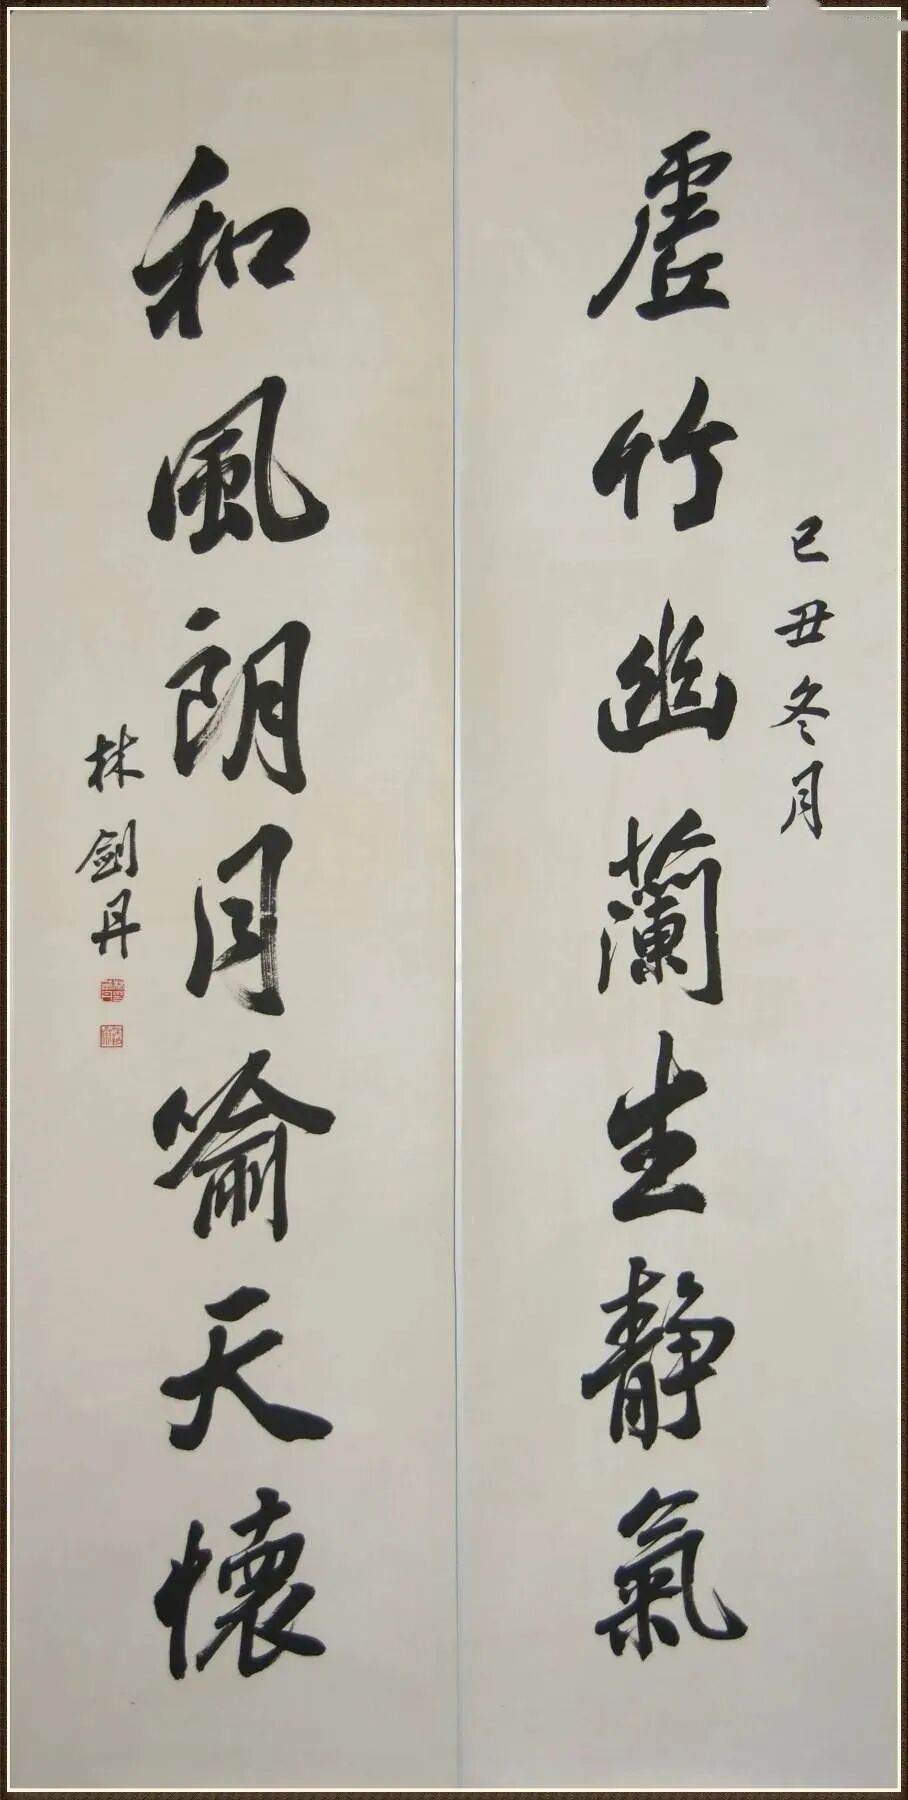 己丑冬月
虚竹幽蘭生静氣
和風朗月喻天懷
林劍丹